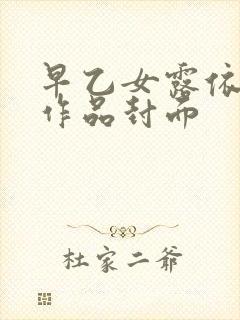 早乙女露依
作品封面
杜家二爷